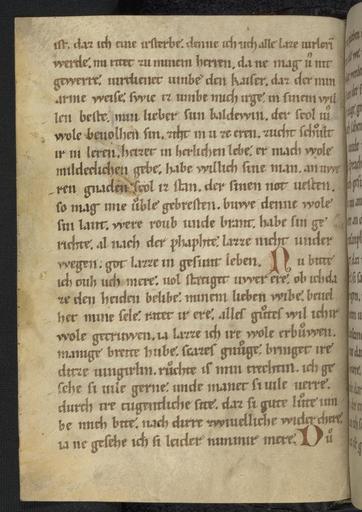 ist. daz ich eine irsterbe. denne ich uch alle laze uirlorn
werde. nu ritet zu minem herren. da ne mag ů nit
gewerre. uirdienet umbe den kaiser. daz der min
arme weise. swie iz umbe mich irge. in sinem wil
len beste. min lieber sun baldewin. der scol iů
wole beuolhen sin. ziht in iz re eren. zucht schůlt
ir in leren. heizet in herlichen lebe. er mach wole
mildeclichen gebe. habe willich sine man. an uwe
ren gnaden scol iz stan. der sinen not uesten.
so mag ime ůble gebresten. buwe denne wole
sin lant. were roub unde brant. habe sin ge
richte. al nach der phaphte. lazze nicht under
wegen. got lazze in gesunt leben. Nu bitte
ich ouh uch mere. uol steiget uwer ere. ob ich da
ze den heiden belibe. minem lieben wibe. beuel
het mine sele. ratet ir ere. alles gůtes wil ich ir
wole getruwen. ia lazze ich ire wole erbůwen.
manige breite hube. scazes gnůge. bringet ire
dizze uingirlin. růchte is min trechtin. ich ge
sehe si uile gerne. unde manet si uile uerre.
durch ire tugentliche site. daz si gute lůte um
be mich bite. nach dirre zwiuelliche widerchere.
ia ne gesehe ich si leider nimmir mere. Dů